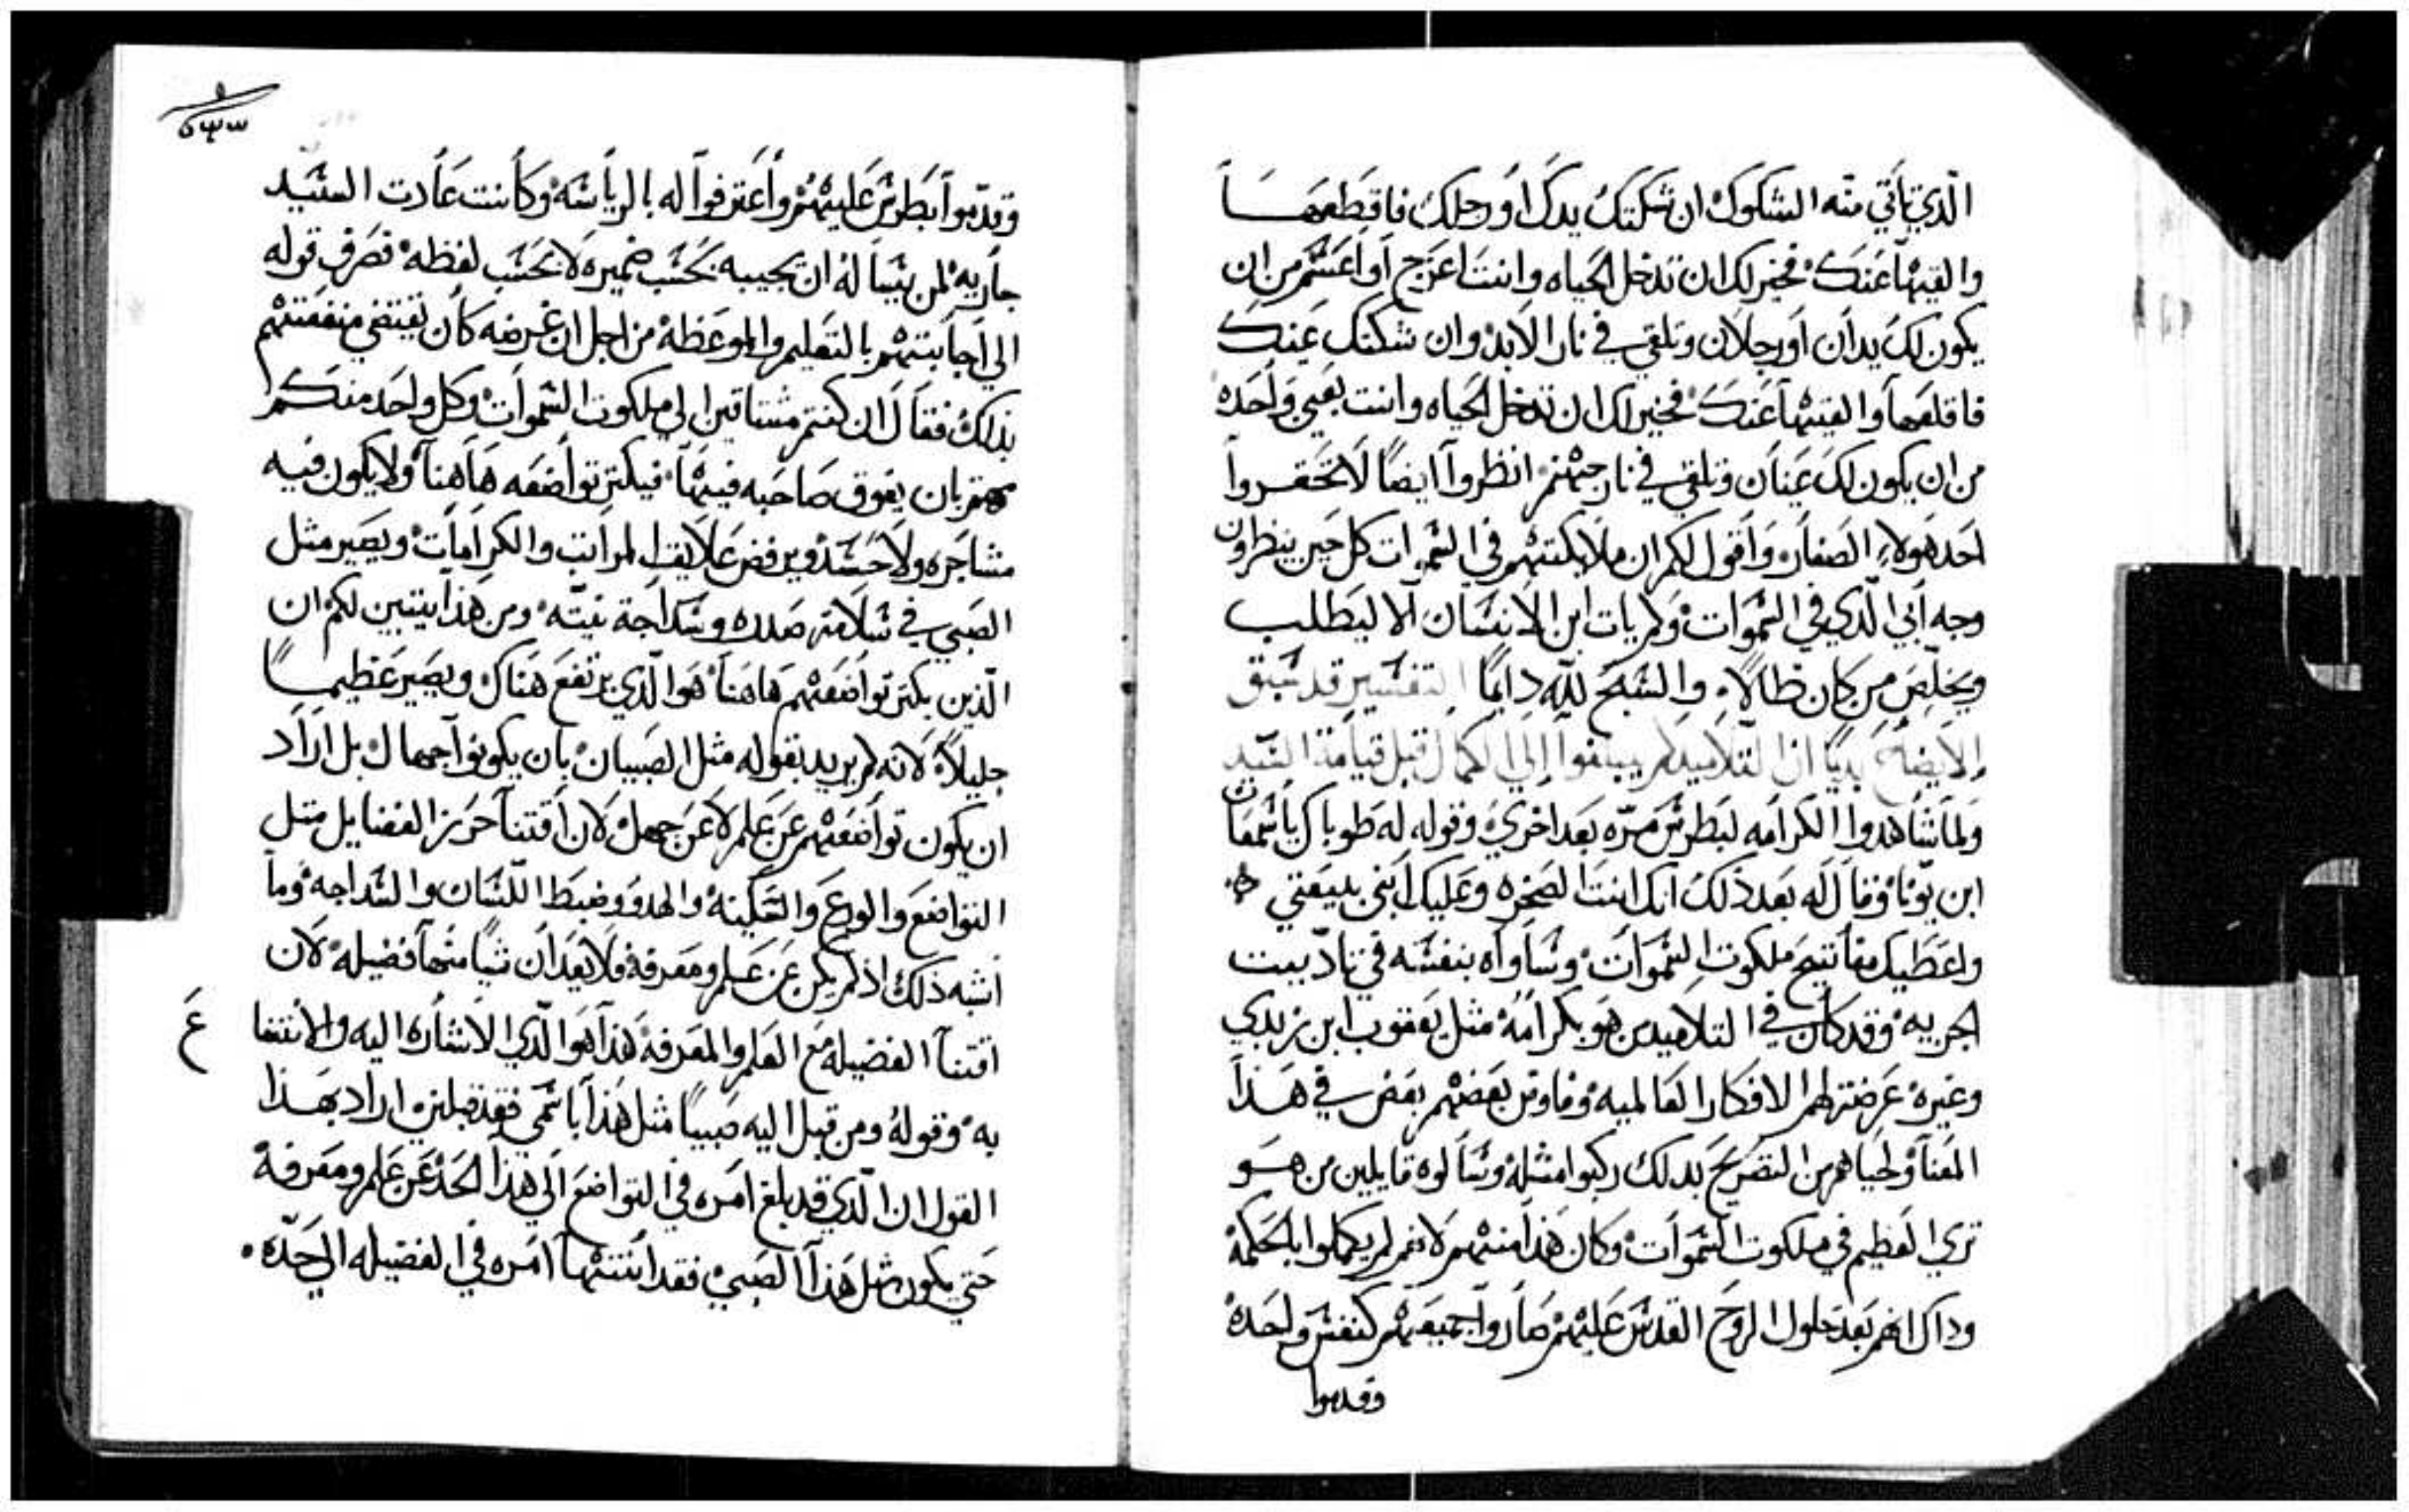 الّذي تاتي منه الشكوك ان شككتك يدك او رجلك فاقطعهـا
والقيها عنك فخير لك ان تدخل الحياه وانت اعرج او اعسم من ان
يكون لك يدان او رجلان وتلقي في نار الابد وان شككتك عينك
فاقلعها والقيها عنك فخير لك ان تدخل الحياه وانت بعين واحده
من ان يكون لك عينان وتلقي في نار جهنم انظروا ايضًا لا تحقروا
احد هولاء الصغار واقول لكم ان ملايكتهم في السموات كل حين ينظرون
وجه ابي الّذي في السموات ولم يات ابن الانسان الا ليطلب
ويخلّص من كان ضالاً والسبح للّه دايمًا التفسير قد سبق
الايضاح بديًا ان التلاميد لم يبلغوا الي الكمال قبل قيامة السيد
ولما شاهدوا الكرامه لبطرس مرّه بعد اخري وقوله له طوباك ياسمعان
ابن يونا وقال له بعد ذلك انك انت الصخره وعليك ابني بيعتي
واعطيك مفاتيح ملكوت السموات وساواه بنفسه في تادّيت
الجزيه وقد كان في التلاميد من هو بكرامة مثل يعقوب ابن زبدي
وغيره عرضت لهم الافكار العالميه وفاوض بعضهم بعض في هذا
المعنا ولحياهم من التصريح بدلك ركبوا مثله وسالوه قايلين من هو
تري العظيم في ملكوت السموات وكان هذا منهم لانهم لم يكملوا بالحكمة
وداك انهم بعد حلول الروح القدس عليهم صاروا جميعهم كنفس واحده
وقدموا
وقدّموا بطرس عليهم واعترفوا له بالرياسه وكانت عادت السيّد
جاريه لمن يسا له ان يجيبه بحسب ضميره لا بحسب لفظه فصرف قوله
الي اجابتهم بالتعليم والموعظة من اجل ان غرضه كان يقتضي منفعتهم
بذلك فقال ان كنتم مشتاقين الي ملكوت السموات وكل واحد منكم
بان يفوق صاحبه فيها فيكتر تواضعه هاهنا ولا يكون فيه
مشاجره ولا حسد ويرفض علايق المراتب والكرامات ويصير مثل
الصبي في سلامة صدره وسداجة نيّته ومن هذا يتبين لكم ان
الّذين يكتر تواضعهم هاهنا هو الّذي يرتفع هناك ويصير عظيمًا
جليلاً لانه لم يريد بقوله مثل الصبيان بان يكونوا جهال بل اراد
ان يكون تواضعهم عن علم لا عن جهل لان اقتنا حرز الفضايل مثل
التواضع والورع والسكينة والهدو وضبط اللّسان والسداجه وما
اشبه ذلك اذ لم يكن عن علم ومعرفة فلا يعد ان شيًا منها فضيله لان
اقتنا الفضيله مع العلم والمعرفة هذا هو الّذي الاشاره اليه والانتفا
ع
به وقوله ومن قبل اليه صبيًا مثل هذا باسمي فقد قبلني اراد بهـذا
القول ان الّذي قد بلغ امره في التواضع الي هذا الحد عن علم ومعرفة
حتي يكون مثل هذا الصبي فقد انتها امره في الفضيله الي حدّه